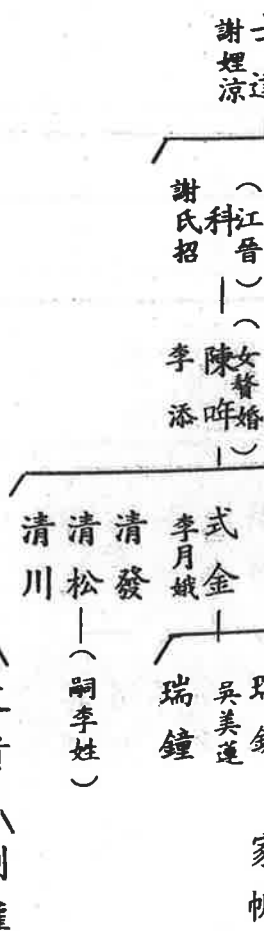 謝娌涼
(江晉)
科
謝氏招
(女贅婚)
陳咩
李添
式金
李月娥
清發
清松
(嗣李姓)
清川
吳美蓮
瑞鐘
家